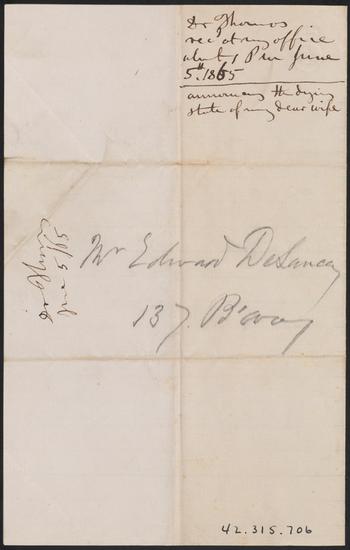 Dr Thomas
rec'd at my office
about 1 P m June
5th. 1865
announcing the dying
state of my dear wife
Mr Edward DeLancey
137. B'way
Dr Thomas
June 5/65
42.315.706